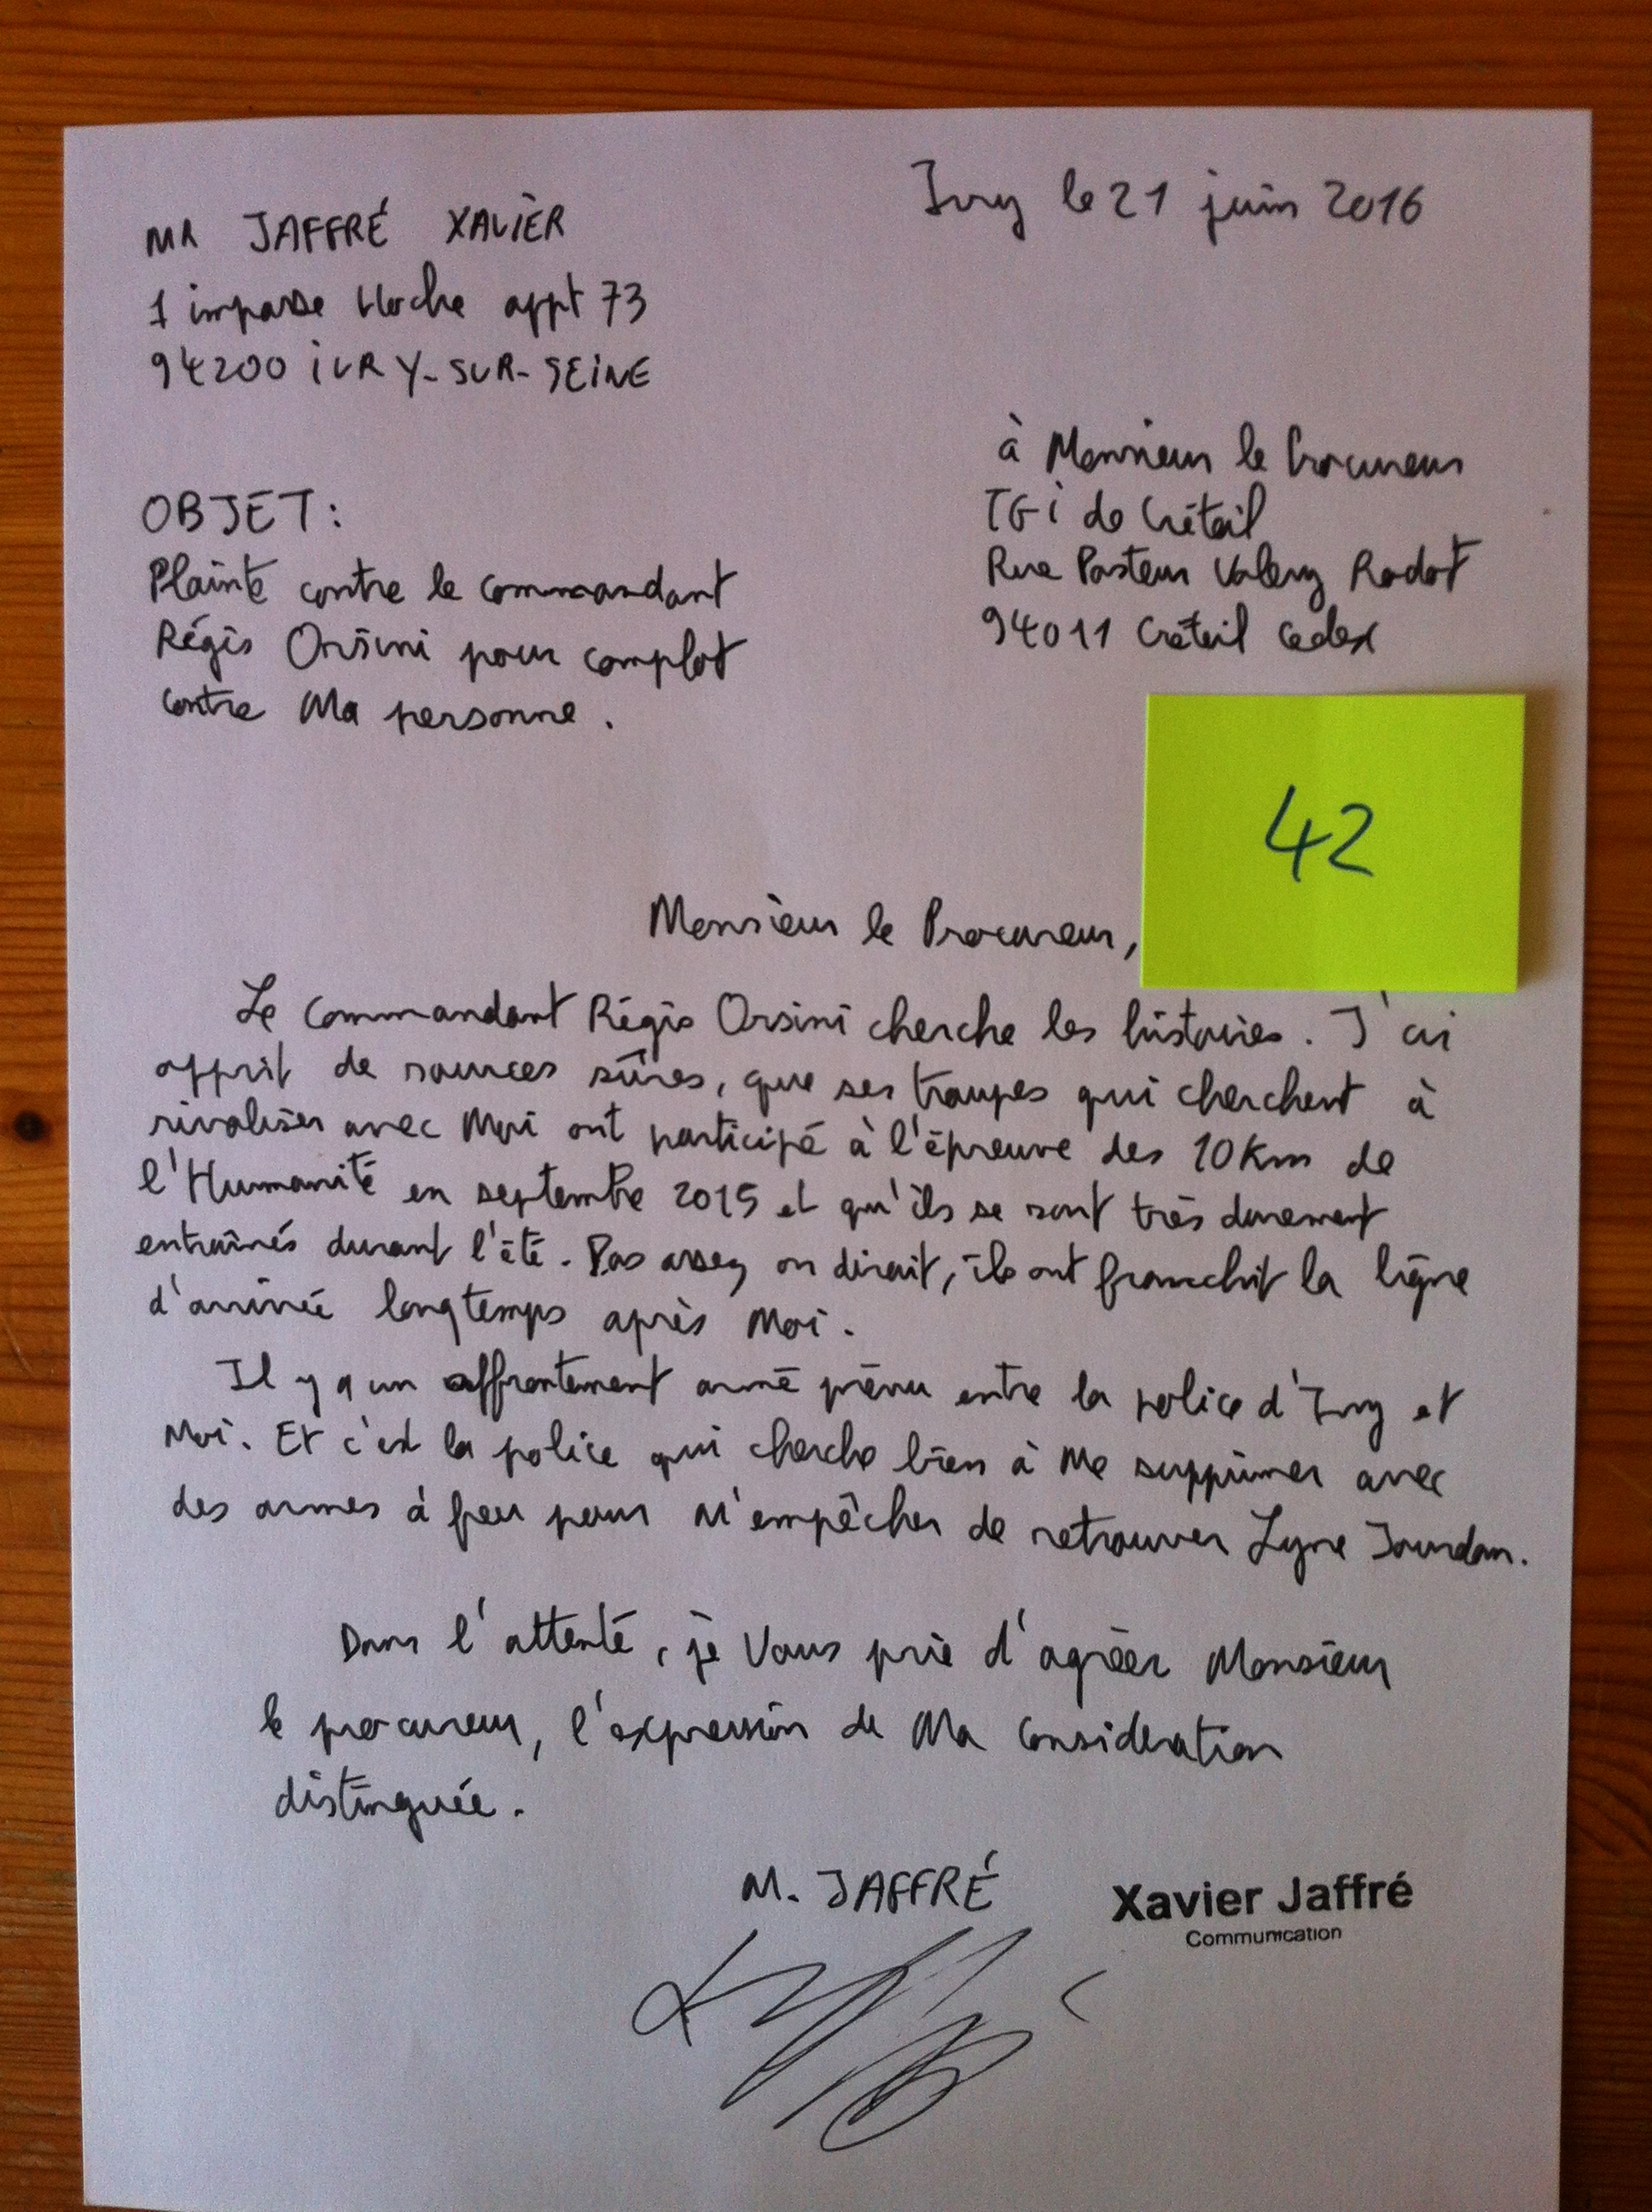 Ivry le 21 juin 2016
MR JAFFRÉ XAVIER
1 impasse Hoche appt 73
94200 IVRY-SUR-SEINE
à Monsieur le Procureur
TGI de Créteil
Rue Pasteur Valery Radot
94011 Créteil cedex
OBJET:
Plainte contre le commandant
Régis Orsini pour complot
contre Ma personne.
42
Monsieur le Procureur,
Le Commandant Régis Orsini cherche les histoires. J'ai
apprit de sources sûres, que ses troupes qui cherchent à
rivaliser avec Moi ont participé à l'épreuve des 10 Km de
l'Humanité en septembre 2015 et qu'ils se sont très durement
entraînés durant l'été. Pas assez on dirait, ils ont franchit la ligne
d'arrivée longtemps après Moi.
Il y a un affrontement armé prévu entre la police d'Ivry et
Moi. Et c'est la police qui cherche bien à Me supprimer avec
des armes à feu pour M'empêcher de retrouver Lyne Jourdan.
Dans l'attente, je Vous prie d'agréer Monsieur
le procureur, l'expression de Ma considération
distinguée.
M. JAFFRÉ
Xavier Jaffré
Communication